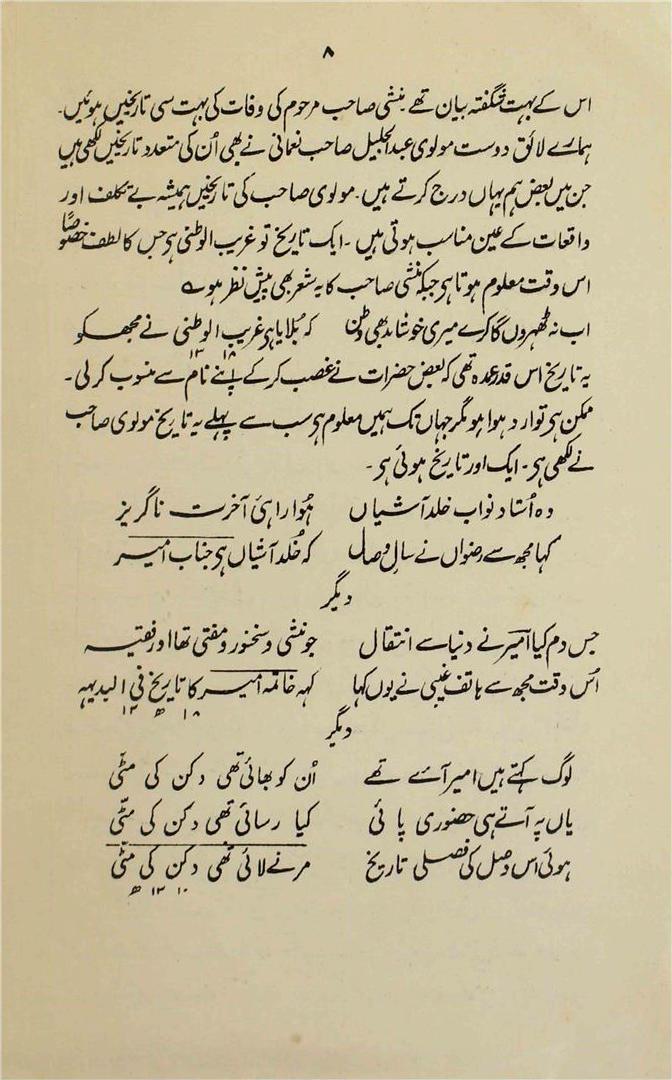 ۸
اس کے بہت شگفتہ بیان تھے۔ منشی صاحب مرحوم کی وفات کی بہت سی تاریخیں ہوئیں۔
ہمارے لائق دوست مولوی عبدالجلیل صاحب نعمانی نے بھی اُن کی متعدد تاریخیں لکھی ہیں
جن میں بعض ہم یہاں درج کرتے ہیں۔ مولوی صاحب کی تاریخیں ہمیشہ بے تکلف اور
واقعات کے عین مناسب ہوتی ہیں۔ ایک تاریخ تو غریب الوطنی ہی جس کا لطف خصوصاً
اس وقت معلوم ہوتا ہی جبکہ منشی صاحب کا یہ شعر بھی پیش نظر ہو ے
اب نہ ٹھہروں گا کرے میری خوشامد بھی وطن کہ بُلایا ہی غریب الوطنی نے مجھ کو
۱۳ ۱۸
یہ تاریخ اس قدر عمدہ تھی کہ بعض حضرات نے غصب کر کے اپنے نام سے منسوب کر لی۔
ممکن ہی توارد ہوا ہو مگر جہاں تک ہمیں معلوم ہی سب سے پہلے یہ تاریخ مولوی صاحب
نے لکھی ہی۔ ایک اور تاریخ ہوئی ہی۔
وہ اُستاد نواب خلد آشیاں ہُوا راہئ آخرت ناگریز
کہا مجھ سے رضواں نے سالِ وصال کہ خُلد آشیاں ہی جناب امیر
دیگر
جس دم کیا امیر نے دنیا سے انتقال جو منشی و سخنور و مفتی تھا اور فقیہ
اُس وقت مجھ سے ہاتف غیبی نے یوں کہا کہہ خاتمہ امیر کا تاریخ فی البدیہہ
۱۸ ھ ۱۳
دیگر
لوگ کہتے ہیں امیر آئے تھے اُن کو بھائی تھی دکن کی مٹّی
یاں پہ آتے ہی حضوری پائی کیا رسائی تھی دکن کی مٹّی
ہوئی اس وصل کی فصلی تاریخ مرنے لائی تھی دکن کی مٹّی
۱۰ ۱۳ ھ